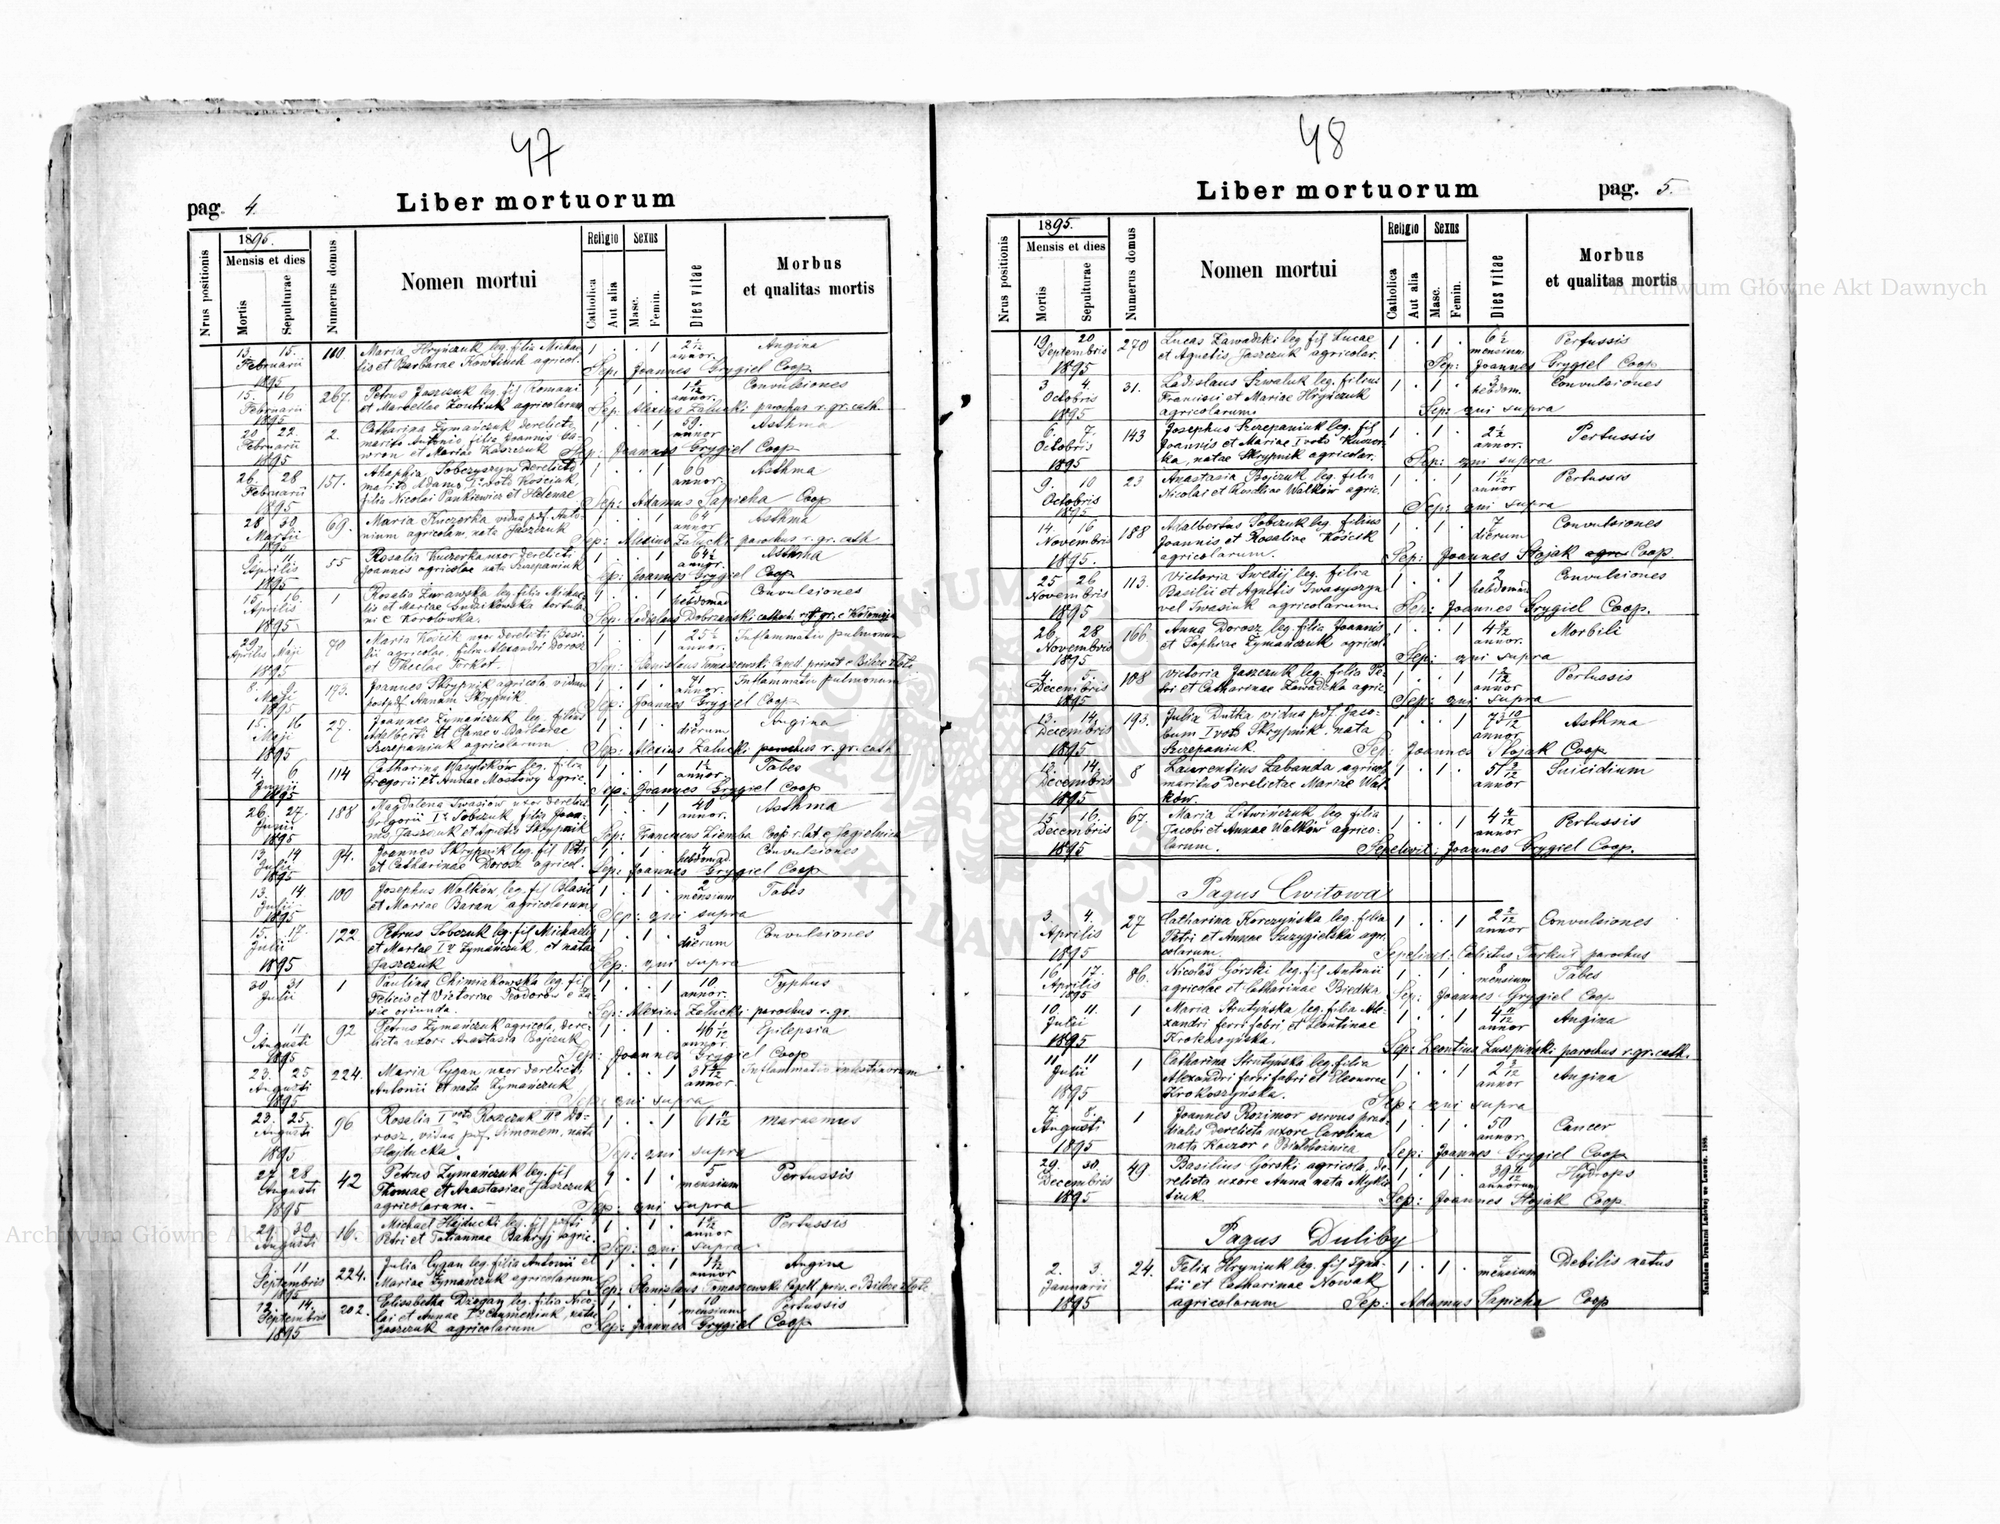 47
pag. 4.
Liber mortuorum
Nrus positionis
1895.
Mensis et dies
Mortis
Sepulturae
Numerus domus
Nomen mortui
Religio
Catholica
Aut alia
Sexus
Masc.
Femin.
Dies vitae
Morbus
et qualitas mortis
13. 15. Februarii 1895
100
Maria Hryńczuk leg. filia Michae-
lis et Barbarae agricol.
1 . . 1
2 1/2 annor.
Angina
Sep: Joannes Grygiel Coop.
15. 16 Februarii 1895
267.
Petrus Jaszczuk leg. fil Romani
et Marcellae agricolarum
1 . 1 .
annor.
Convulsiones
Sep. Alexius Załucki parochus r. gr. cath.
20 22. Februarii 1895
2.
Catharina Zymańczuk derelicta
marito Antonio, filia Joannis Ga-
wron et Mariae Kaszczuk
1 . . 1
59. annor
Asthma
Sep: Joannes Grygiel Coop
26. 28 Februarii 1895
151.
Sobczyszyn derelicto
marito Adamo Kościuk,
filia Nicolai Pankiewicz et Helenae
1 . . 1
66 annor.
Asthma
Sep: Adamus Sapieha Coop
28 30. Martii 1895
69.
Maria Kuczerka vidua post Anto-
nium agricolam nata Jaszczuk
1 . . 1
64 annor
Asthma
Sep: Alexius Załucki parochus r. gr. cath
Aprilis 11. 1895
55
Rosalia Kuczerka uxor derelicti
Joannis agricolae nata Szczepaniuk
1 . . 1
64 1/2 annor.
Asthma
Sep: Joannes Grygiel Coop
15. 16. Aprilis 1895
1
Rosalia Zurawska leg. filia Michae-
lis et Mariae hortula-
ni e Korolowka.
1 . . 1
2 hebdomad
Convulsiones
Sep. Ladislaus Dobrzański
29. 1. Aprilis Maji 1895
70
Maria Kościk uxor derelicti Basi-
lii agricolae, filia Alexandri Dorosz
et Theclae
1 . . 1
25 1/2 annor.
Inflammatio pulmonum
Sep: Stanislaus Tomaszewski Capell privat e Bilcze złote
8. 9. Maji 1895
173.
Joannes Skrypnik agricola, viduus
post pdf. Annam Skrypnik
1 . 1 .
71 annor.
Inflammatio pulmonum
Sep: Joannes Grygiel Coop
15. 16 Maji 1895
27.
Joannes Zymańczuk leg. filius
Adalberti et Clarae v Barbarae
Szczepaniuk agricolarum
1 . 1 .
3 dierum
Angina
Sep: Alexius Załucki parochus r. gr. cath
4. 6. Junii 1895
114
Catharina Wasylków leg. filia
Gregorii et Annae Mostowy agric.
1 . . 1
1 1/2 annor.
Tabes
Sep: Joannes Grygiel Coop
26. 27. Junii 1895
188
Magdalena Iwasiow uxor derelicti
Gregorii Sobczuk filia Joan-
nis Jaszczuk et Agnetis Skrypnik
1 . . 1
40 annor.
Asthma
Sep: Franciscus Ziemba Coop r. lat e Jagielnica
13 14 Julii 1895
94.
Joannes Skrypnik leg. fil Petri
et Catharinae Dorosz agricol.
1 . 1 .
4 hebdomad.
Convulsiones
Sep: Joannes Grygiel Coop
13. 14. Julii 1895
100
Josephus Walków leg. fil Blasii
et Mariae Baran agricolarum
1 . 1 .
2 mensium
Tabes
Sep: qui supra
15. 17. Julii 1895
122
Petrus Sobczuk leg. fil Michaelis
et Mariae Iv Zymańczuk, et nata
Jaszczuk
1 . 1 .
3 dierum
Convulsiones
Sep: qui supra
30 31 Julii
1
Paulina Chimiakowska leg. fil
Felicis et Victoriae Teodorów e
oriunda
1 . . 1
10 annor.
Typhus
Sep: Alexius Załucki parochus r. gr.
9. 11 Augusti 1895
92
Petrus Zymańczuk agricola, dere-
licta uxore Anastasia Bojczuk
1 . 1 .
annor.
Epilepsia
Sep: Joannes Grygiel Coop
23. 25 Augusti 1895
224.
Maria Cygan uxor derelicti
Antonii et nata Zymańczuk
1 . . 1
annor.
Inflammatio intestinorum
Sep: qui supra
23. 25. Augusti 1895
96
Rosalia I voto Roszczuk IIo Do-
rosz, vidua pdf. Simonem, nata
Hajducka.
1 . . 1
61 11/12
Marasmus
Sep: qui supra
27. 28 Augusti 1895
42
Petrus Zymańczuk leg. fil
Thomae et Anastasiae Jaszczuk
agricolarum.
1 . 1 .
5 mensium
Pertussis
Sep: qui supra
29. 30 Augusti
16.
Michael Hajducki leg. fil
Petri et Tatiannae Bahryj agric.
1 . 1 .
annor
Pertussis
Sep: qui supra
11 Septembris 1895
224.
Julia Cygan leg. filia Antonii et
Mariae Zymańczuk agricolarum
1 . . 1
annor
Angina
Sep: Stanislaus Tomaszewski Capell priv. e Bilcze złote
12. 14. Septembris 1895
202.
Elisabetha Dzygan leg. filia Nico-
lai et Annae nata
Jaszczuk agricolarum
1 . . 1
10 mensium
Pertussis
Sep: Joannes Grygiel Coop
48
Liber mortuorum
pag. 5.
Nrus positionis
1895.
Mensis et dies
Mortis
Sepulturae
Numerus domus
Nomen mortui
Religio
Catholica
Aut alia
Sexus
Masc.
Femin.
Dies vitae
Morbus
et qualitas mortis
19. 20 Septembris 1895
270
Lucas Zawadzki leg fil Lucae
et Agnetis Jaszczuk agricolar.
1 . 1 .
6 1/2 mensium
Pertussis
Sep: Joannes Grygiel Coop
3 4. Octobris 1895
31.
Ladislaus Szwaluk leg. filius
Francisci et Mariae Hryńczuk
agricolarum
1 . 1 .
3 hebdom.
Convulsiones
Sep: qui supra
6. 7. Octobris 1895
143
Josephus Szczepaniuk leg. fil
Joannis et Mariae I voto Kuczer-
ka, natae Skrypnik agricolar.
1 . 1 .
2 1/2 annor.
Pertussis
Sep: qui supra
9. 10 Octobris 1895
23
Anastasia Bojczuk leg. filia
Nicolai et Rosaliae Walków agric.
1 . . 1
annor
Pertussis
Sep: qui supra
14. 16 Novembris 1895.
188
Adalbertus Sobczuk leg. filius
Joannis et Rosaliae Kościk
agricolarum.
1 . 1 .
7 dierum
Convulsiones
Sep: Joannes Stojak Coop.
25 26 Novembris 1895
113.
Victoria Swedij leg. filia
Basilii et Agnetis Iwasyszyn
vel Iwasiuk agricolarum
1 . . 1
2 hebdomad
Convulsiones
Sep: Joannes Grygiel Coop.
26. 28 Novembris 1895
166.
Anna Dorosz leg. filia Joannis
et Sophiae Zymańczuk agricol.
1 . . 1
annor.
Morbili
Sep: qui supra
4. 5. Decembris 1895
108
Victoria Jaszczuk leg. filia Pe-
tri et Catharinae Zawadzka agric
1 . . 1
annor
Pertussis
Sep: qui supra
13. 14. Decembris 1895
195.
Julia Dutka vidua pdf. Jaco-
bum I voto Skrypnik, nata
Szczepaniuk.
1 . . 1
73 10/12 annor
Asthma
Sep: Joannes Stojak Coop
13. 14. Decembris 1895
8
Laurentius Labanda agricol
maritus derelictae Mariae Wal-
ków.
1 . 1 .
annor
Suicidium
15 16. Decembris 1895
67.
Maria Litwińczuk leg. filia
Jacobi et Annae Walków agrico-
larum.
1 . . 1
annor
Pertussis
Sepelivit: Joannes Grygiel Coop.
Pagus Cwitowa
3. 4. Aprilis 1895
27
Catharina Korczyńska leg. filia
Petri et Annae Suzygielska agri-
colarum.
1 . . 1
2 2/12 annor
Convulsiones
Sepelivit: Calixtus Turkut parochus
16. 17. Aprilis 1895
86.
Nicolaus Górski leg. fil Antonii
agricolae et Catharinae Biedka.
1 . 1 .
8 mensium
Tabes
Sep: Joannes Grygiel Coop
10. 11. Julii 1895
1
Maria Strutyńska leg. filia Ale-
xandri ferri fabri et Leontinae
1 . . 1
4 11/12 annor
Angina
Sep: Leontius Luszpiński parochus r. gr. cath.
11. 11 Julii 1895
1
Catharina Strutyńska leg. filia
Alexandri ferri fabri et Eleonorae
Krokoszyńska.
1 . . 1
annor
Angina
Sep: qui supra
7. 8. Augusti 1895
1
Joannes Rozimor servus prae-
dialis derelicta uxore Carolina
nata Kaczor e Białobożnica
1 . 1 .
50 annor.
Cancer
Sep: Joannes Grygiel Coop
29. 30. Decembris 1895
49
Basilius Górski agricola, de-
relicta uxore Anna nata Mykie-
tiuk
1 . 1 .
39 11/12 annorum
Hydrops
Sep: Joannes Stojak Coop.
Pagus Duliby
2. 3. Januarii 1895
24.
Felix Hryniuk leg. fil Igna-
tii et Catharinae Nowak
agricolarum
1 . 1 .
7 mensium
Debilis natus
Sep: Adamus Sapieha Coop
Archiwum Główne Akt Dawnych
Archiwum Główne Akt Dawnych